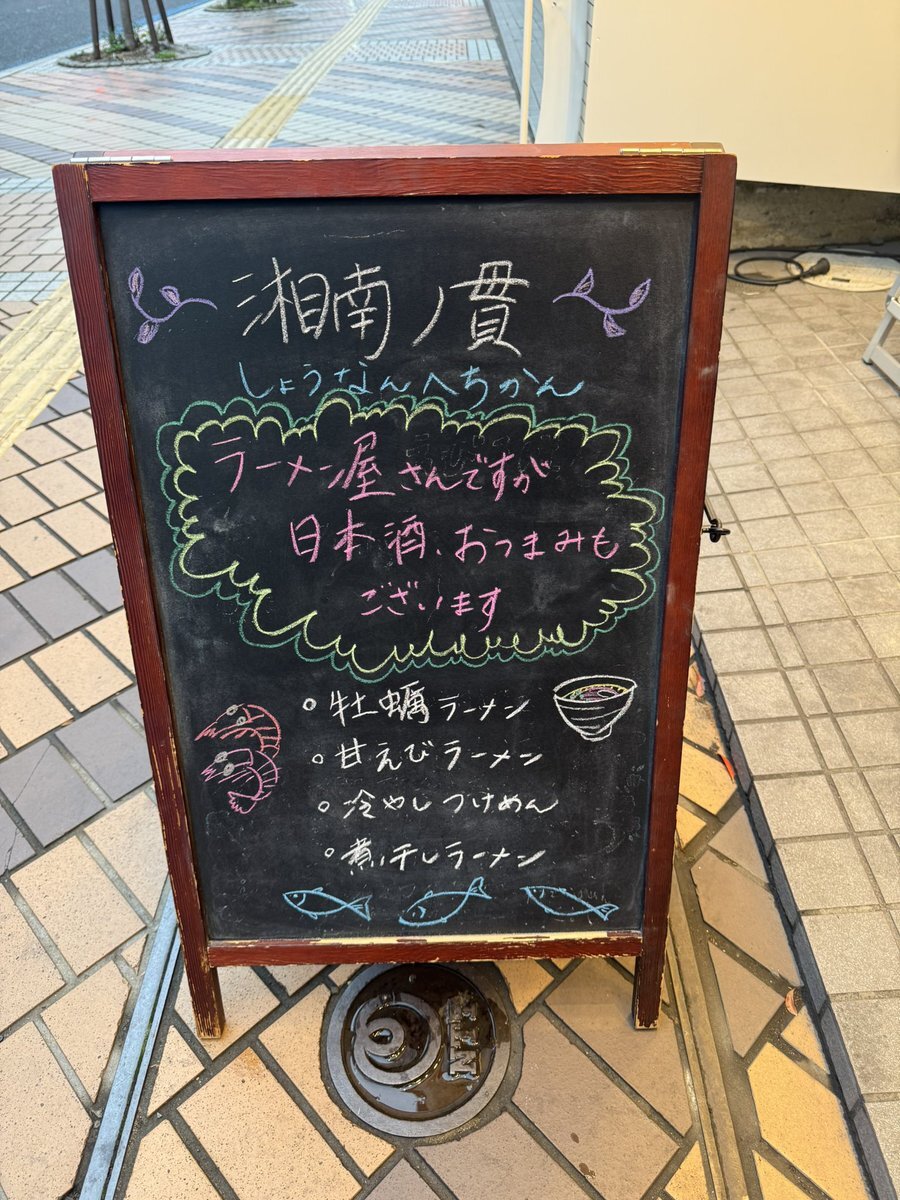 湘南ノ貫
しょうなんへちかん
ラーメン屋さんですが
日本酒、おつまみも
ございます
◦牡蠣ラーメン
◦甘えびラーメン
◦冷やしつけめん
◦煮干しラーメン